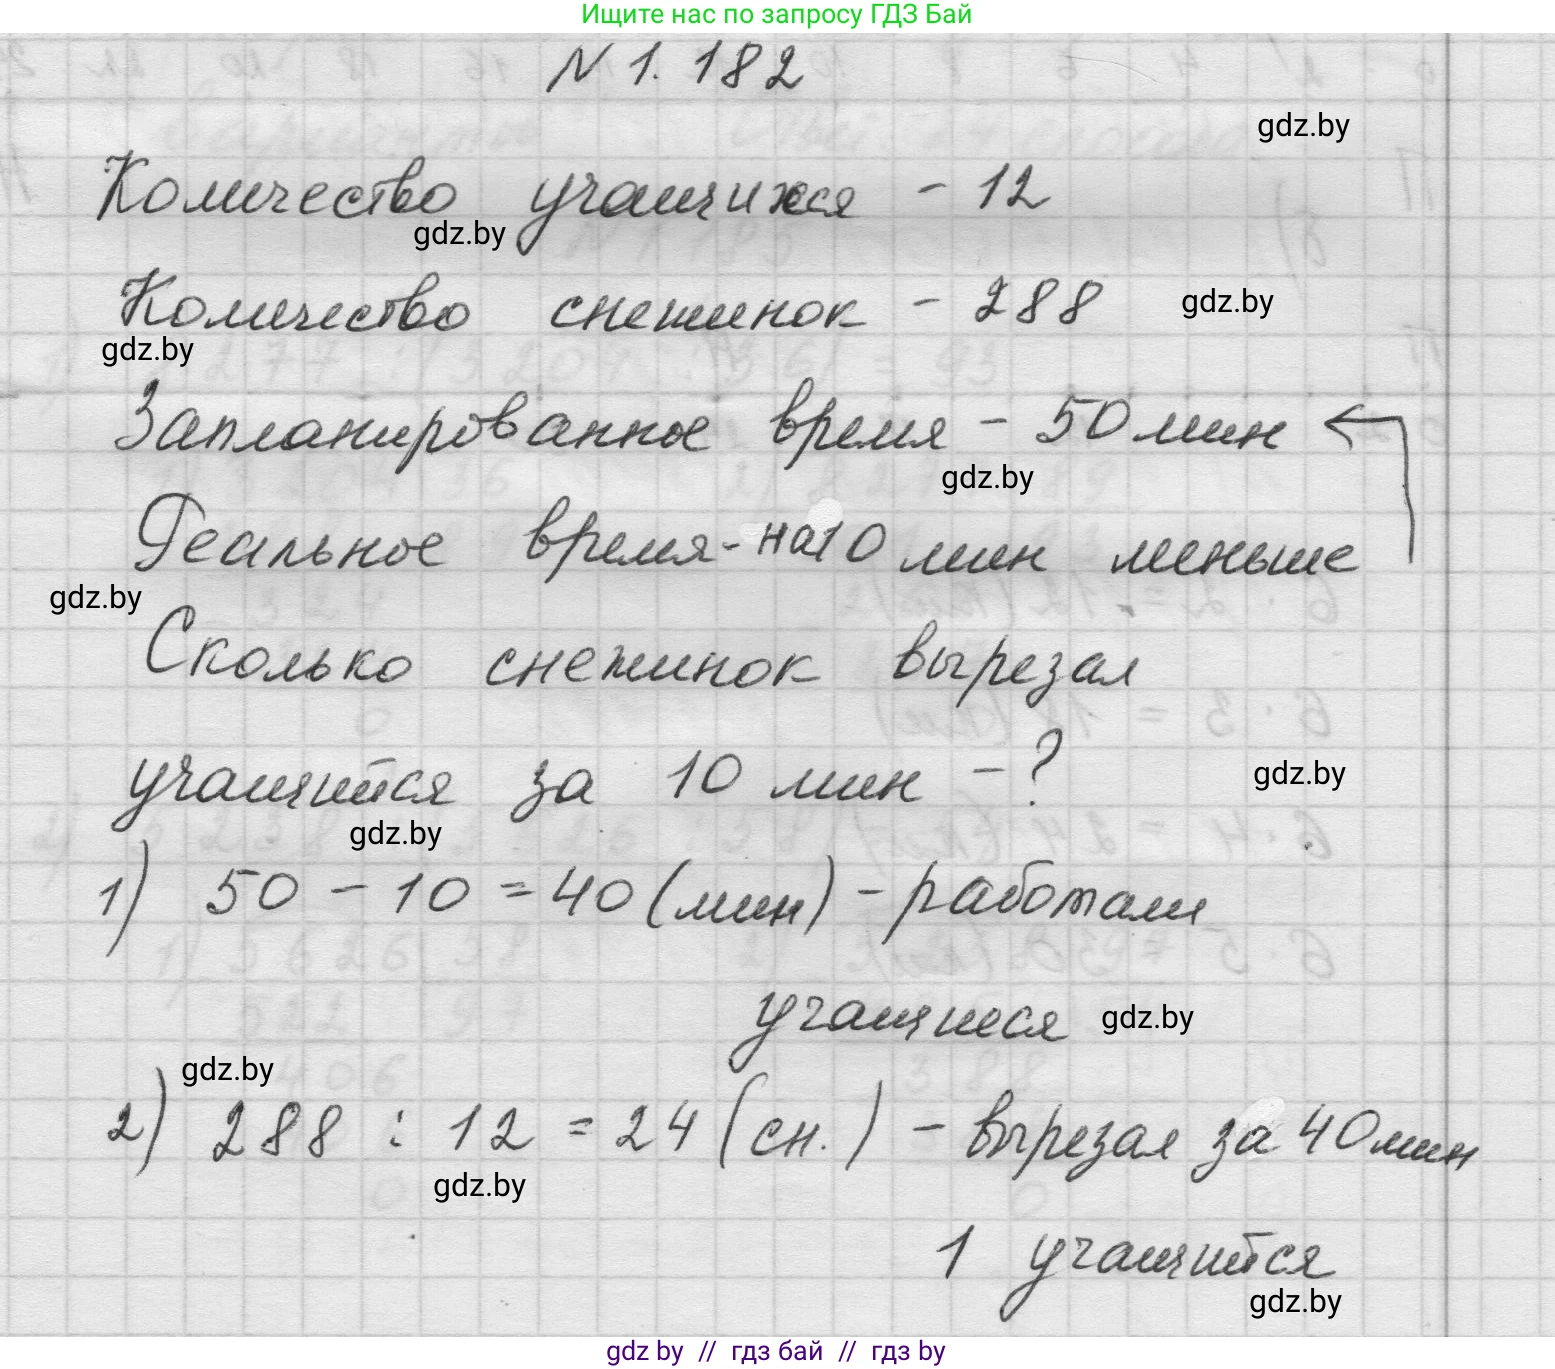 Ищите нас по запросу ГДЗ Бай
N 1. 182
gdz.by
Количество учащихся - 12
gdz.by
Количество снежинок - 288 gdz.by
gdz.by
Запланированное время - 50 мин
gdz.by
Реальное время - на 10 мин меньше
gdz.by
Сколько снежинок вырезал
учащийся за 10 мин - ?
gdz.by
gdz.by
1) 50 - 10 = 40 (мин) - работали
учащиеся gdz.by
gdz.by
2) 288 : 12 = 24 (сн.) - вырезал за 40 мин
gdz.by
1 учащийся
gdz.by
gdz by // гдз бай // гдз by